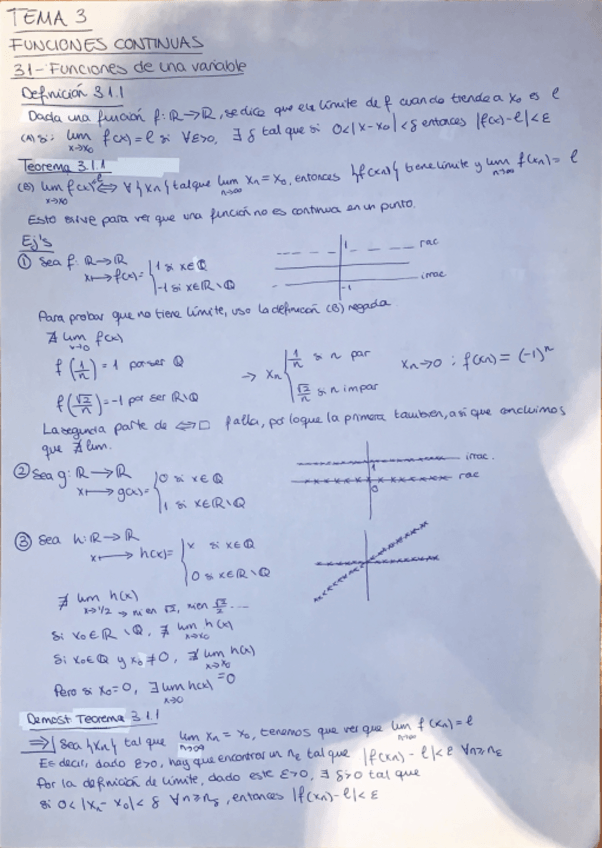 TEMA 3
FUNCIONES CONTINUAS
3.1- Funciones de una variable
Definición 3.1.1
Dada una función f: ℝ→ℝ, se dice que el límite de f cuando tiende a x₀ es ℓ
(A) si: lim x→x₀ f(x)=ℓ si ∀ε>0, ∃ δ tal que si 0<|x-x₀|<δ entonces |f(x)-ℓ|<ε
Teorema 3.1.1
(B) lim x→x₀ f(x)=ℓ ⟺ ∀{xₙ} tal que lim n→∞ xₙ = x₀, entonces {f(xₙ)} tiene límite y lim n→∞ f(xₙ) = ℓ
Esto sirve para ver que una función no es continua en un punto.
Ej's
① Sea f: ℝ→ℝ
x ↦ f(x)= { 1 si x∈ℚ
-1 si x∈ℝ\ℚ
1 rac
irrac
-1
Para probar que no tiene límite, uso la definición (B) negada.
∄ lim x→0 f(x)
f(1/n) = 1 por ser ℚ
f(√2/n) = -1 por ser ℝ\ℚ
→ xₙ { 1/n si n par
√2/n si n impar
xₙ→0 ; f(xₙ) = (-1)ⁿ
La segunda parte de ⟺□ falla, por lo que la primera también, así que concluimos
que ∄ lim.
② Sea g: ℝ→ℝ
x ↦ g(x)= { 0 si x∈ℚ
1 si x∈ℝ\ℚ
irrac.
1
rac
0
③ Sea h: ℝ→ℝ
x ↦ h(x)= { x si x∈ℚ
0 si x∈ℝ\ℚ
∄ lim x→1/2 h(x) → ni en √2, ni en √2/2 ...
Si x₀∈ℝ\ℚ, ∄ lim x→x₀ h(x)
Si x₀∈ℚ y x₀≠0, ∄ lim x→x₀ h(x)
Pero si x₀=0, ∃ lim x→0 h(x) = 0
Demost Teorema 3.1.1
⟹| Sea {xₙ} tal que lim n→∞ xₙ = x₀, tenemos que ver que lim n→∞ f(xₙ) = ℓ
Es decir, dado ε>0, hay que encontrar un nε tal que |f(xₙ) - ℓ|<ε ∀n≥nε
Por la definición de límite, dado este ε>0, ∃ δ>0 tal que
si 0<|xₙ - x₀|<δ ∀n≥nδ, entonces |f(xₙ)-ℓ|<ε